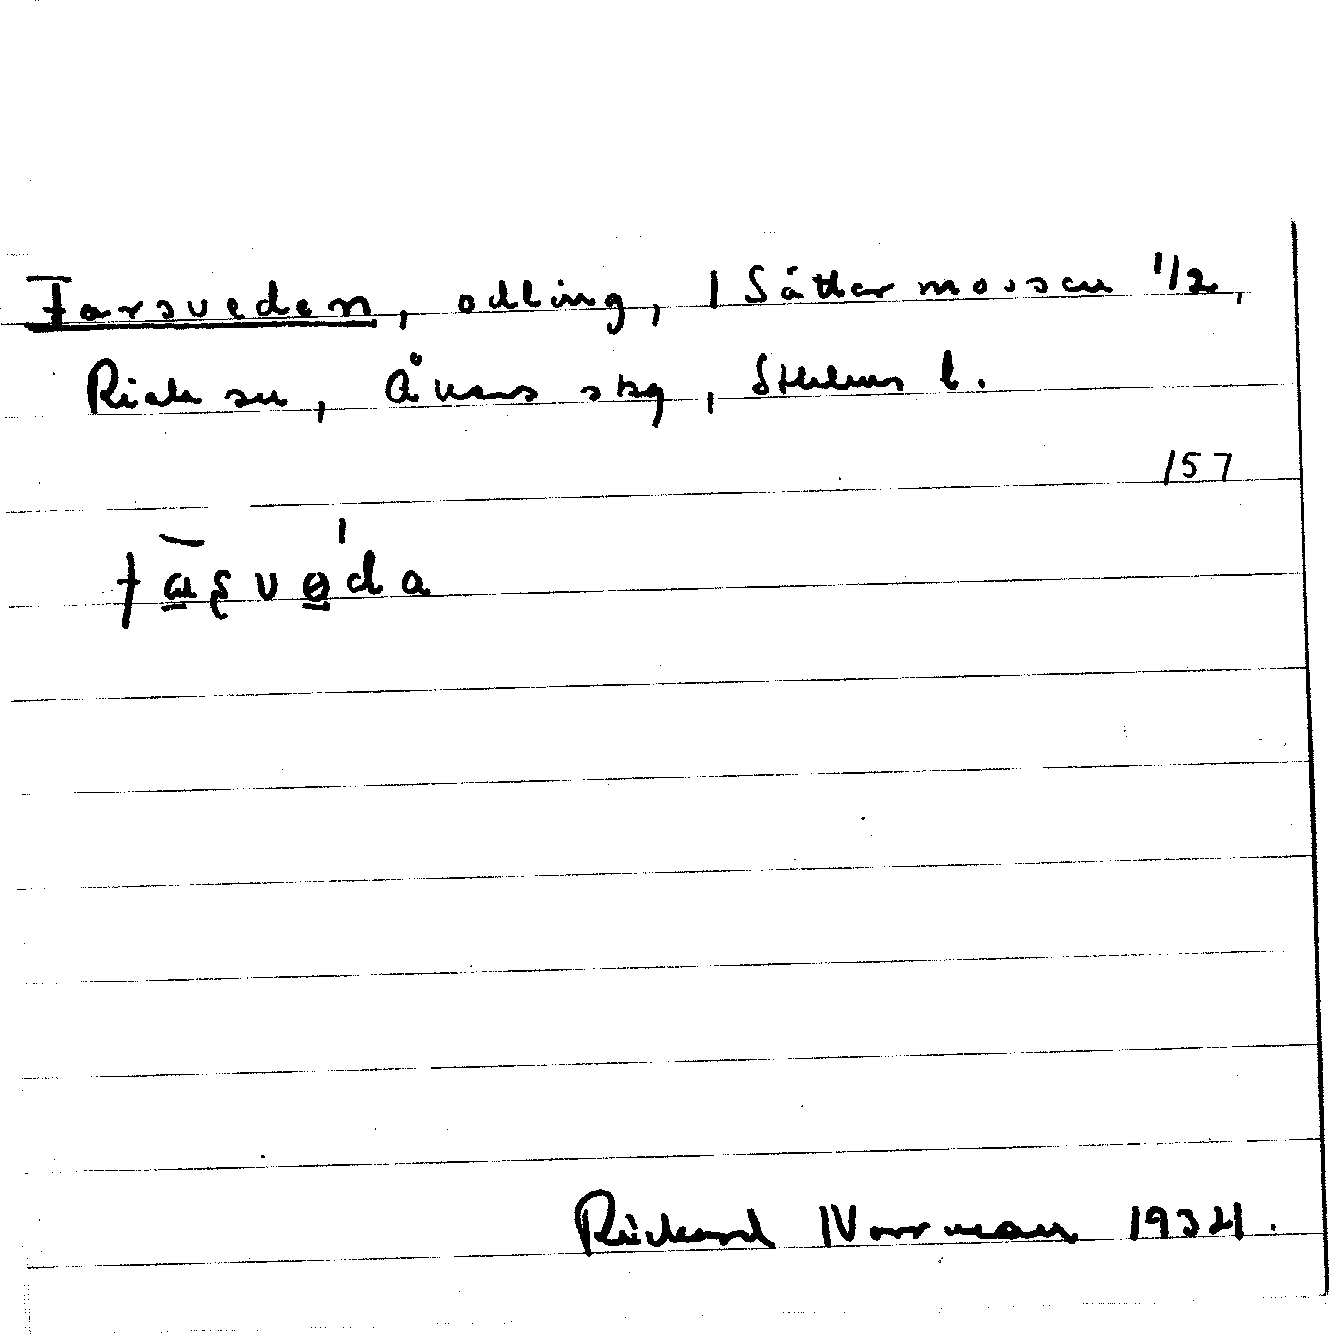 Farsveden, odling, 1 Såttarmossen 1/2,
Riala sn, Åkers skg, Sthlms l.
157
fa̱ʂvɵ̱da
Rickard Norrman 1934.